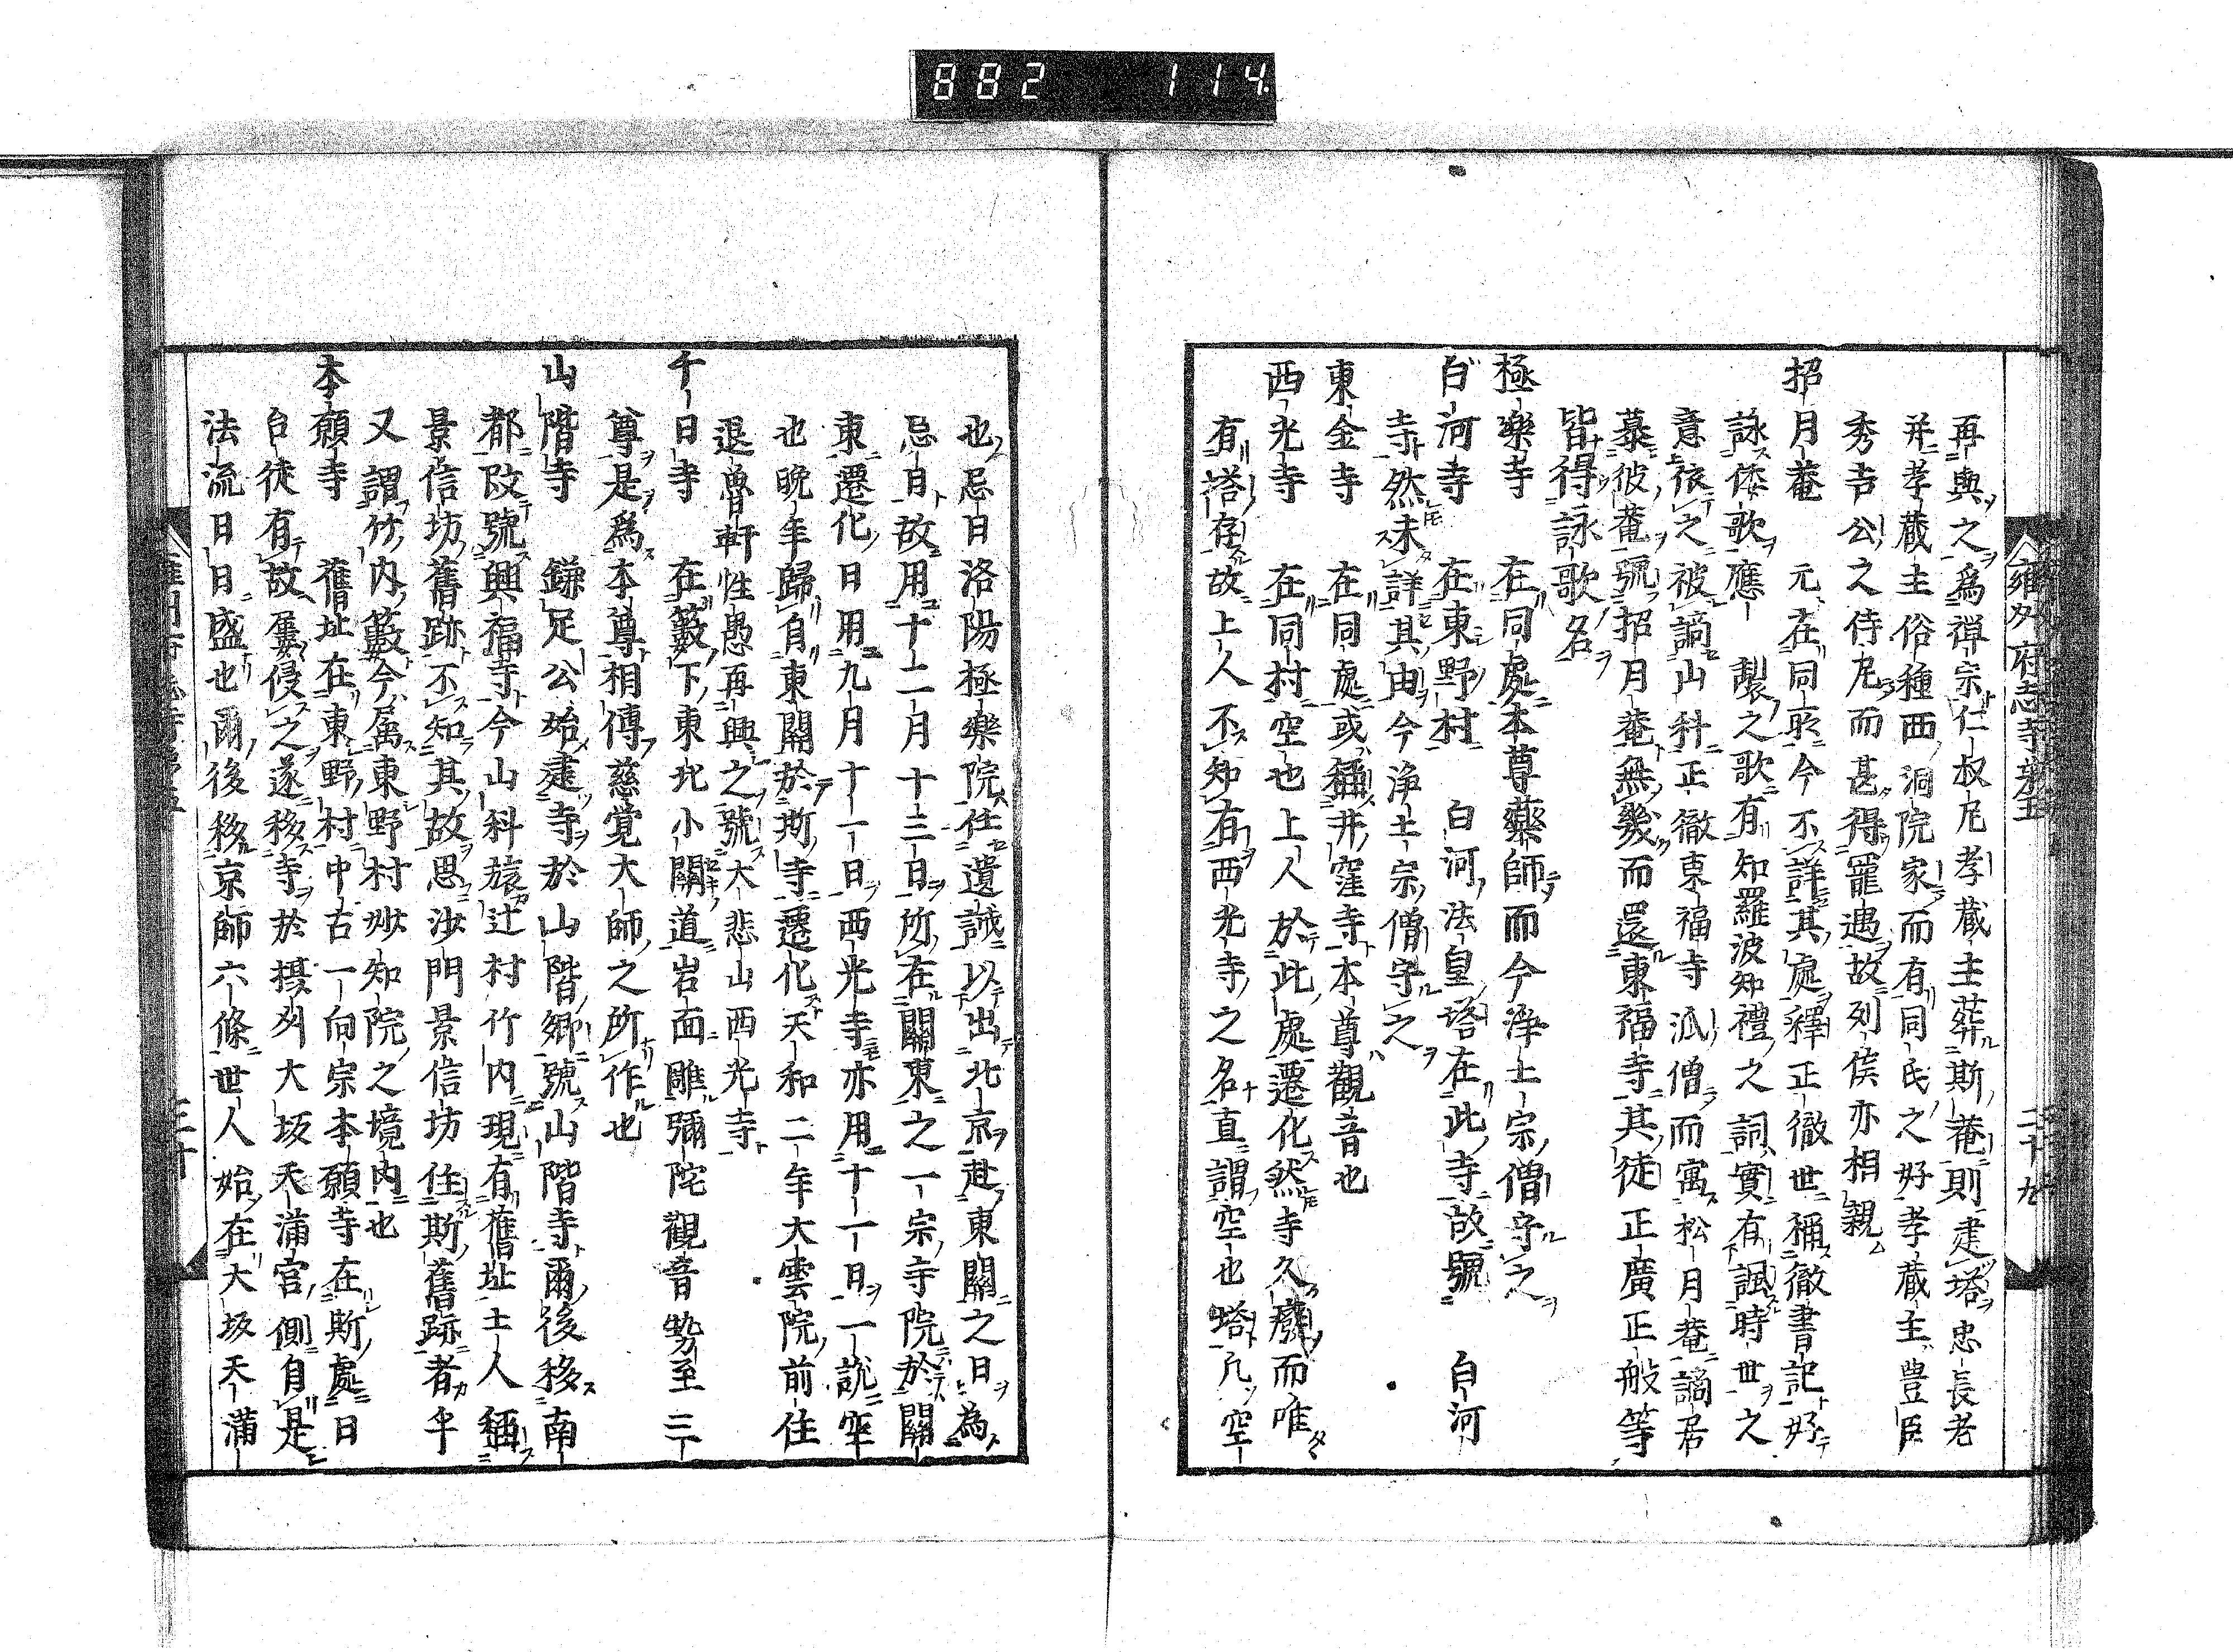 882 114
雍州府志寺第五
二十九
再興之為禅宗仁叔尼孝蔵主葬斯菴則建塔忠長老
并孝蔵主俗種西洞院家而有同氏之好孝蔵主豊臣
秀吉公之侍尼而甚得寵遇故列侯亦相親
招月菴 元在同所今不詳其處釋正徹世稱徹書記好
詠倭歌應 製之歌有知羅波知禮之詞實有諷時世之
意依之被謫山科正徹東福寺派僧而寓松月菴謫居
慕彼菴號招月菴無幾而還東福寺其徒正廣正般等
皆得詠歌名
極樂寺 在同處本尊藥師而今淨土宗僧守之
白河寺 在東野村 白河法皇塔在此寺故號 白河
寺然未詳其由今浄土宗僧守之
東金寺 在同處或稱井窪寺本尊觀音也
西光寺 在同村空也上人於此處遷化然寺久廢而唯
有塔存故上人不知有西光寺之名直謂空也塔凡空
也忌日洛陽極樂院任遺誡以出北京赴東關之日為
忌日故用十二月十三日所在關東之一宗寺院於關
東遷化日用九月十一日西光寺亦用十一日一説空
也晩年歸自東關於斯寺遷化天和二年大雲院前住
退魯軒性愚再興之號大悲山西光寺
千日寺 在藪下東北小關道岩面雕彌陀觀音勢至三
尊是爲本尊相傳慈覚大師之所作也
山階寺 鎌足公始建寺於山階郷號山階寺爾後移南
都改號興福寺今山科旅辻村竹内現有舊址土人稱
景信坊舊跡不知其故思沙門景信坊住斯舊跡者乎
又謂竹内藪今属東野村妙知院之境内也
本願寺 舊址在東野村中古一向宗本願寺在斯處日
法流日日盛也爾後移京師六條世人始在大坂天蒲